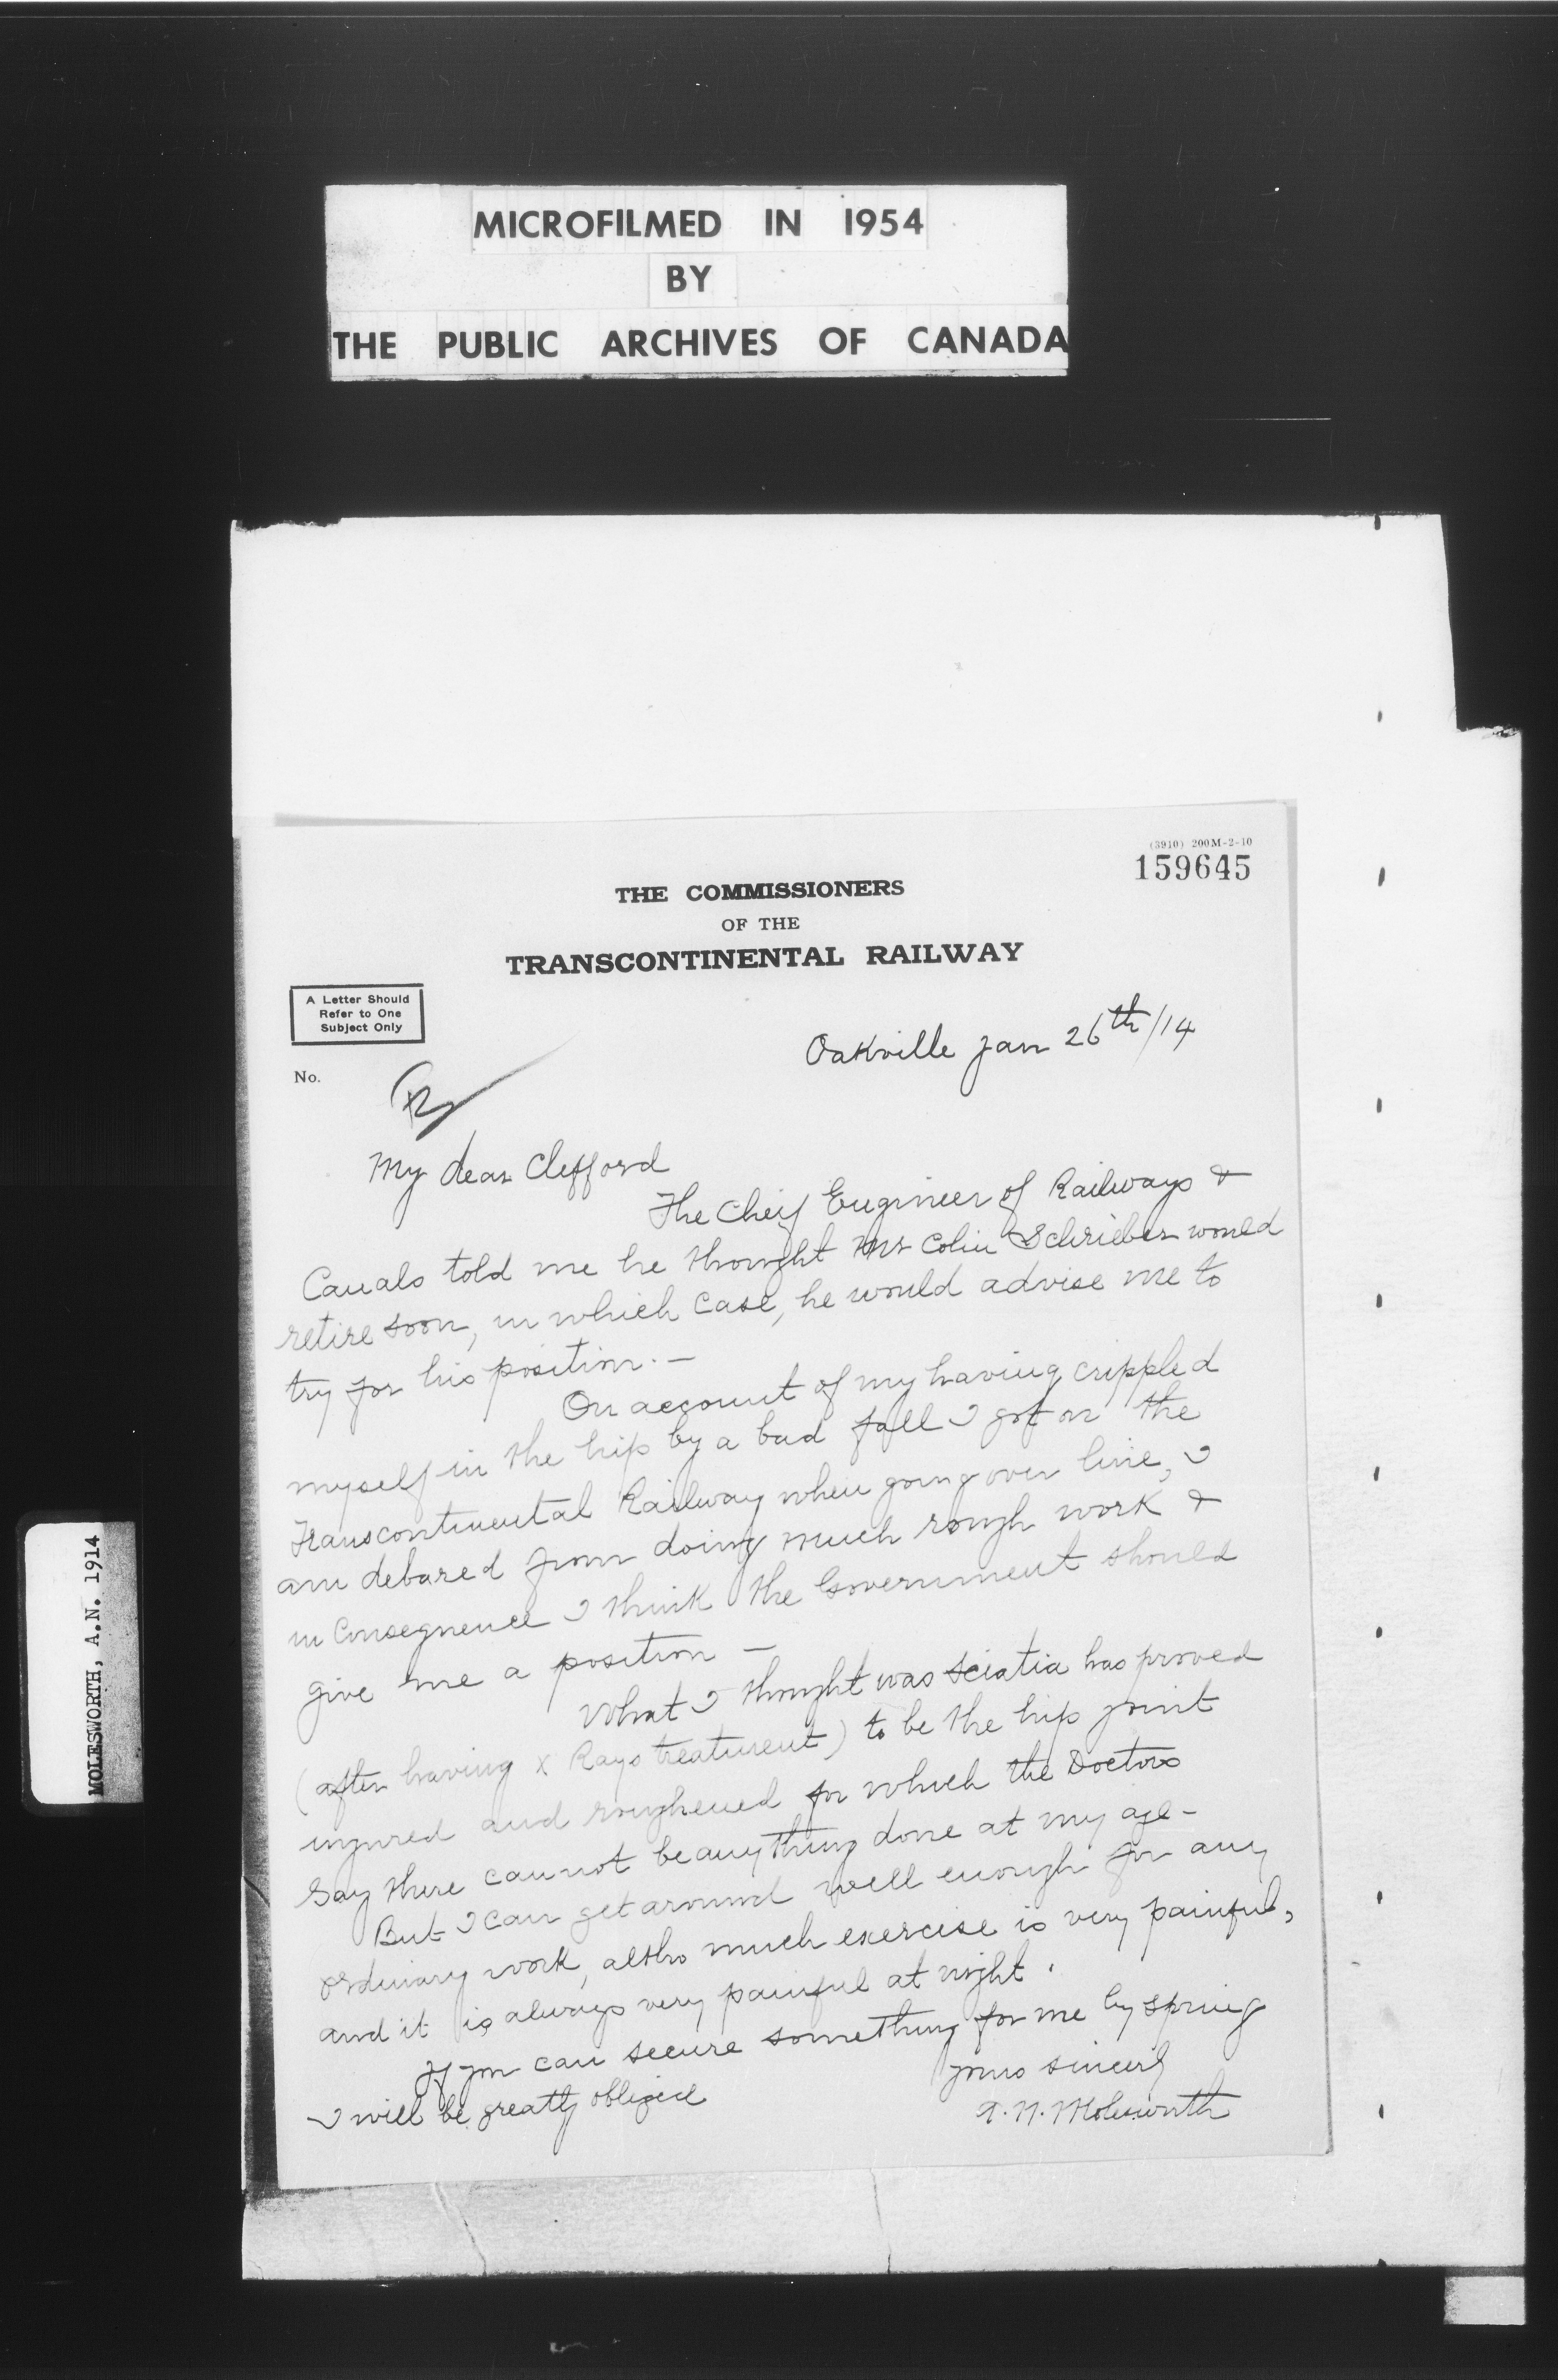 MICROFILMED IN 1954
BY
THE PUBLIC ARCHIVES OF CANADA
(3910) 200M-2-10
159645
THE COMMISSIONERS
OF THE
TRANSCONTINENTAL RAILWAY
A Letter Should
Refer to One
Subject Only
No.
Oakville Jan 26th/14
My dear Clefford
The Cheif Engineer of Railways &
Canals told me he thought Mr Colin Schrieber would
retire soon, in which case, he would advise me to
try for his position. —
On account of my having crippled
myself in the hip by a bad fall I got on the
Transcontinental Railway when going over line, I
am debared from doing much rough work &
in Consequence I think the Government should
give me a position —
What I thought was Sciatia has proved
(after having x Rays treatment) to be the hip joint
injured and roughened for which the Doctors
say there cannot be anything done at my age -
But I can get around well enough for any
ordinary work, altho much exercise is very painful,
and it is always very painful at night.
If you can secure something for me by spring
I will be greatly obliged
yours sincerly
A. N. Molesworth
MOLESWORTH, A.N. 1914